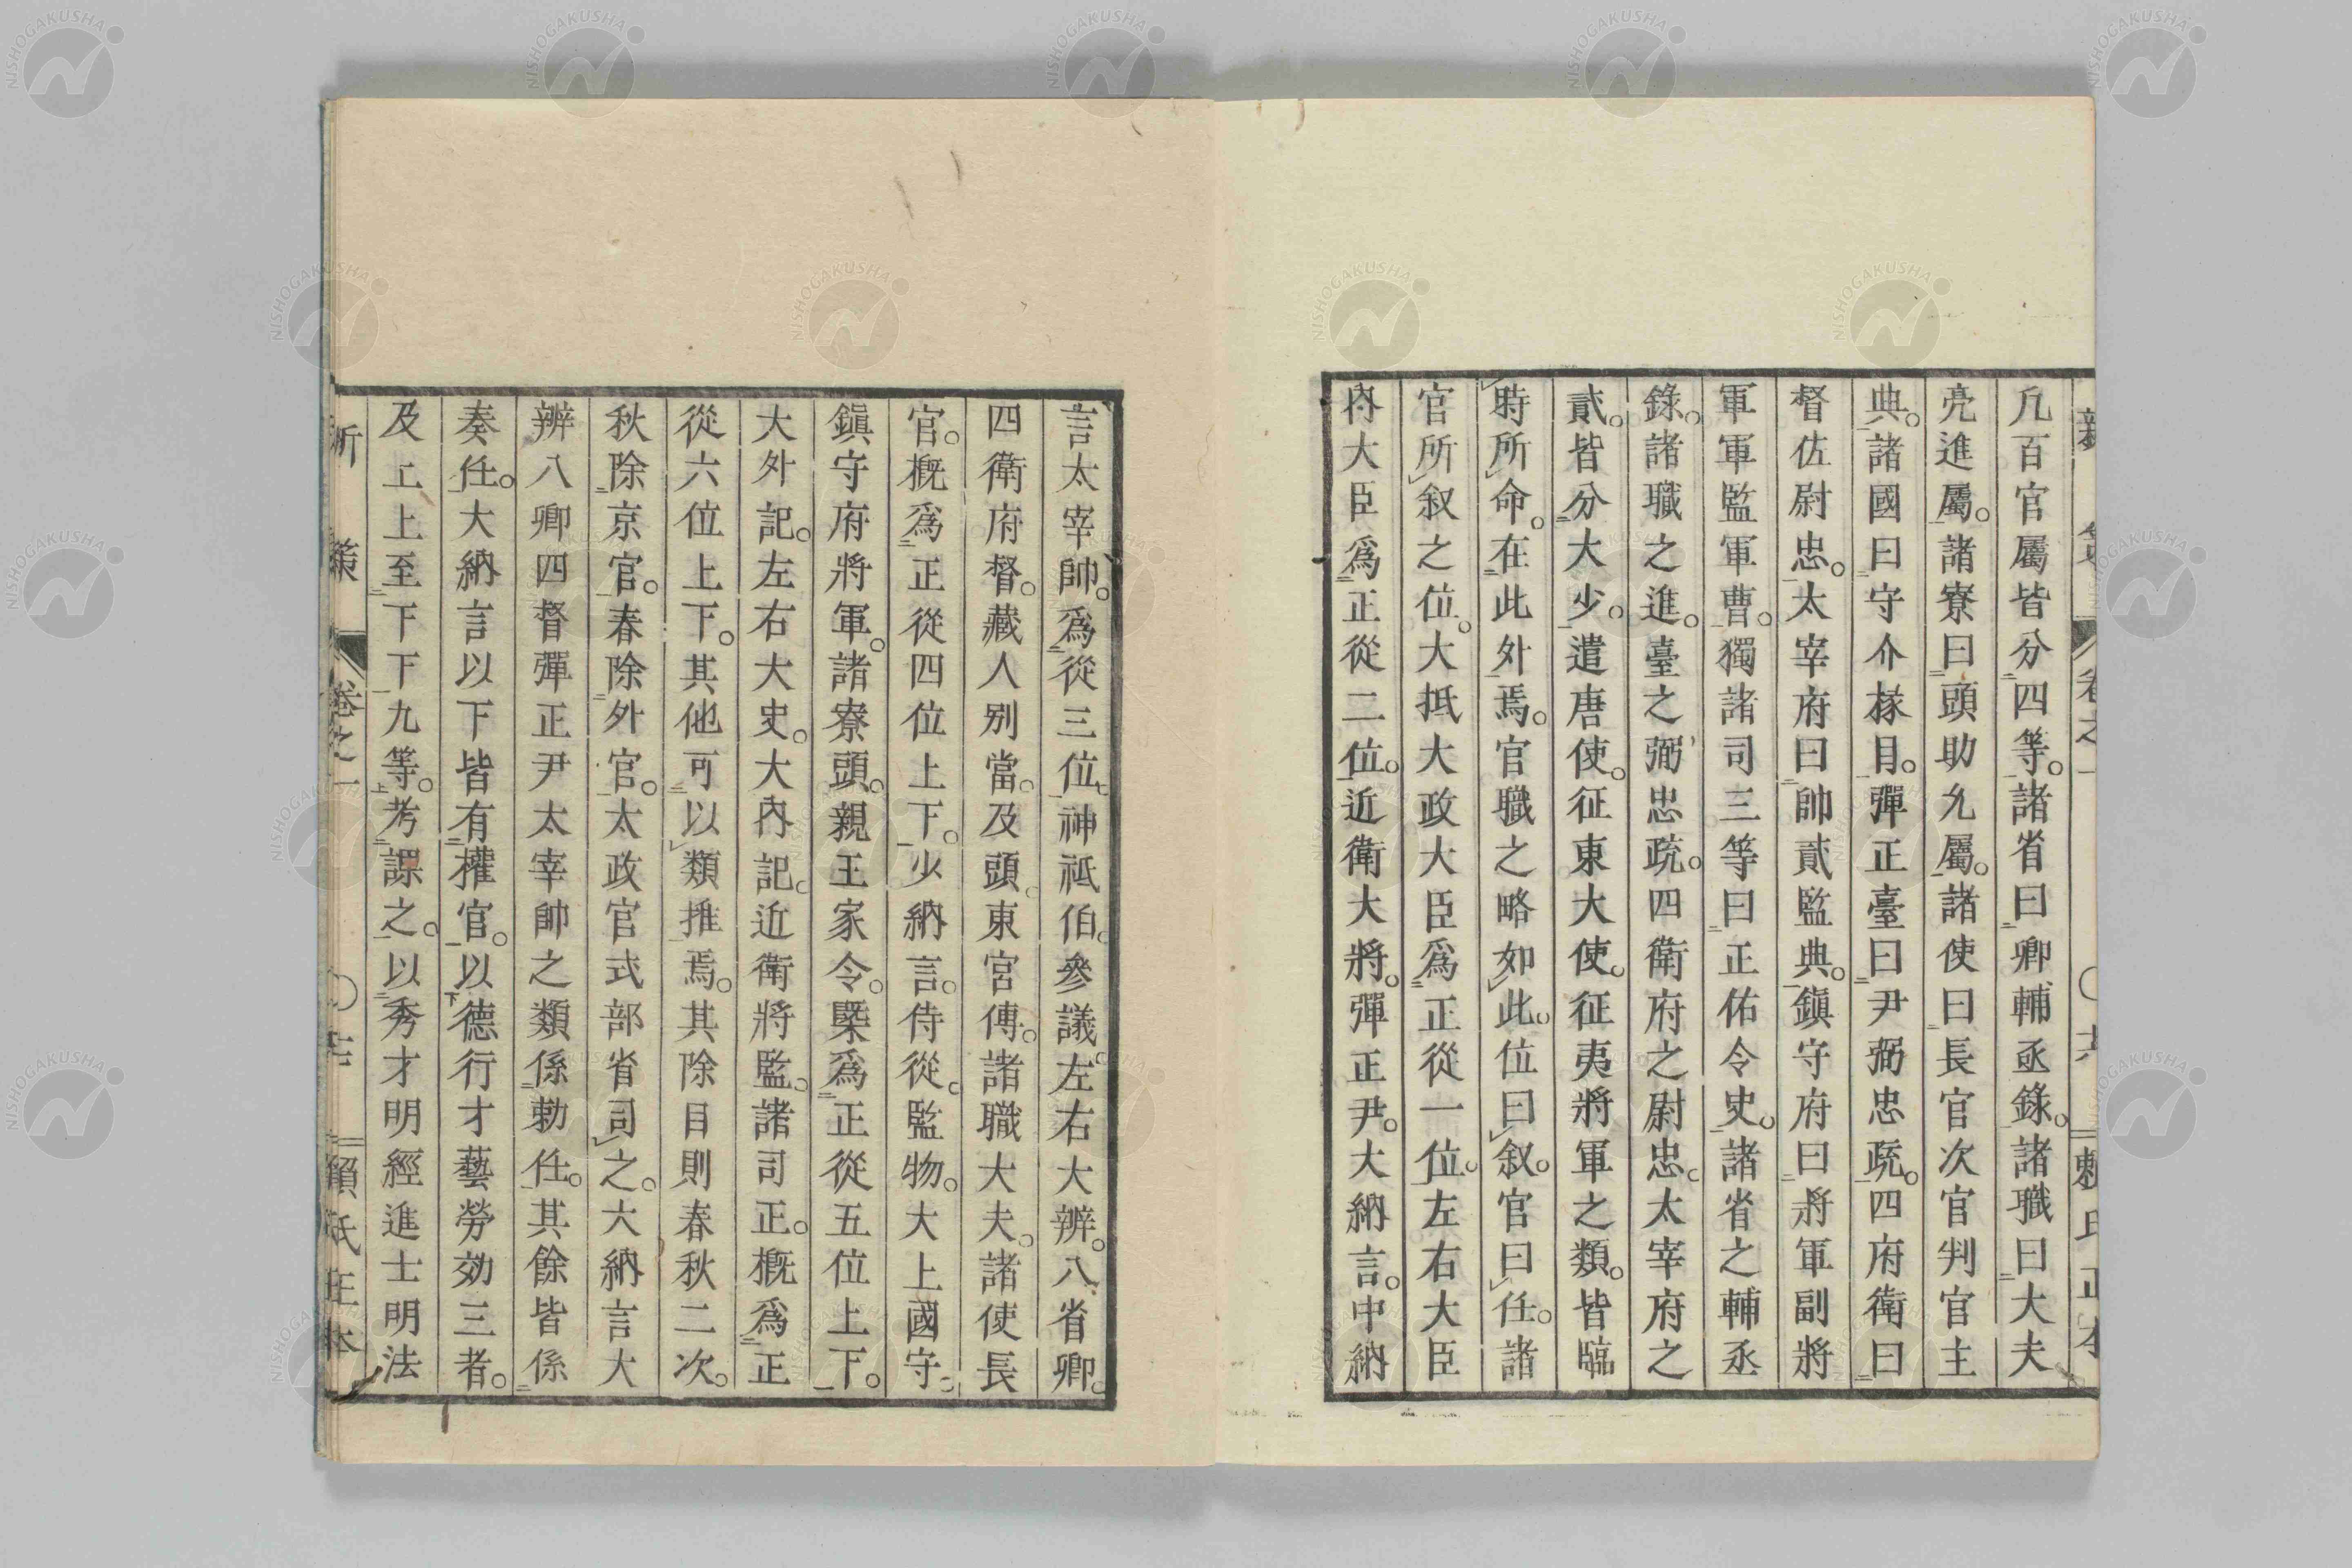 凡百官屬皆分四等。諸省曰卿輔丞錄。諸職曰大夫
亮進屬。諸寮曰頭助允屬。諸使曰長官次官判官主
典。諸國曰守介掾目。彈正臺曰尹弼忠疏。四府衛曰
督佐尉忠。太宰府曰帥貳監典。鎭守府曰將軍副將
軍軍監軍曹。獨諸司三等曰正佑令史。諸省之輔丞
錄。諸職之進。臺之弼忠疏。四衛府之尉忠。太宰府之
貳。皆分大少。遣唐使。征東大使。征夷將軍之類。皆臨
時所命。在此外焉。官職之略如此。位曰叙。官曰任。諸
官所叙之位。大抵大政大臣爲正從一位。左右大臣
內大臣爲正從二位。近衛大將。彈正尹。大納言。中納
言太宰帥。爲從三位。神祇伯。參議。左右大辨。八省卿。
四衛府督。藏人別當。及頭。東宮傅。諸職大夫。諸使長
官。概爲正從四位上下。少納言。侍從。監物。大上國守。
鎭守府將軍。諸寮頭。親王家令。槩爲正從五位上下。
大外記。左右大史。大內記。近衛將監。諸司正。概爲正
從六位上下。其他可以類推焉。其除目則春秋二次。
秋除京官。春除外官。太政官式部省司之。大納言大
辨八卿四督彈正尹太宰帥之類係勅任。其餘皆係
奏任。大納言以下皆有權官。以德行才藝勞効三者。
及上上至下下九等。考課之。以秀才明經進士明法
新策 卷之一 賴氏正本
NISHOGAKUSHA